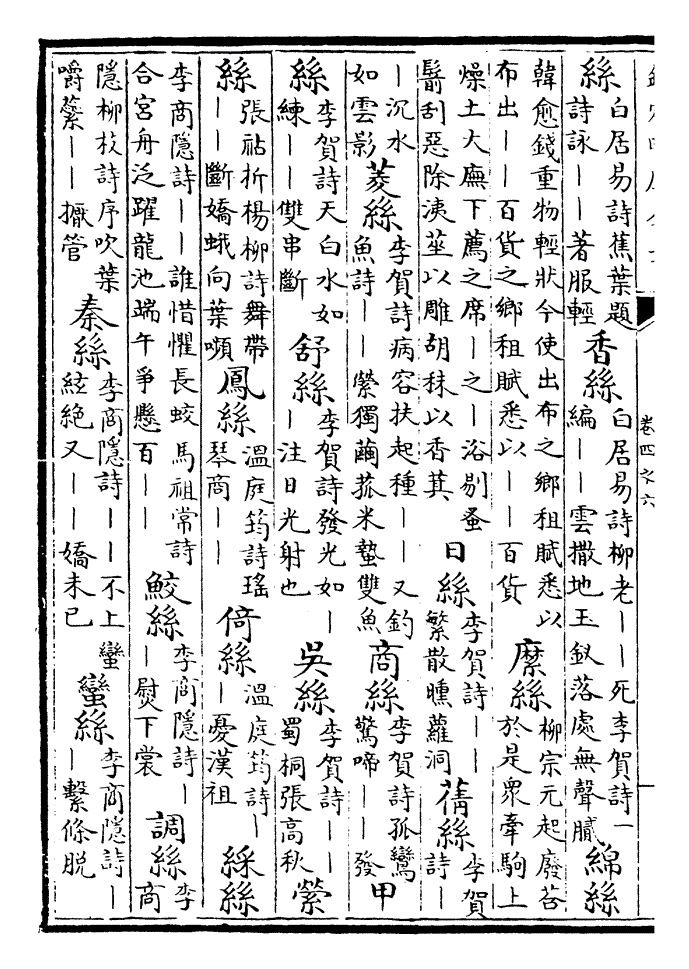 卷四之六
絲白居易詩蕉葉題詩詠——著服輕香絲白居易詩柳老——死李賀詩—編——雲撒地玉釵落處無聲膩綿絲
韓愈錢重物輕狀今使出布之鄉租賦悉以布出——百貨之鄉租賦悉以——百貨縻絲柳宗元起廢荅於是眾牽駒上
燥土大廡下薦之席—之—浴剔蚤鬋刮惡除洟莝以雕胡秣以香萁日絲李賀詩——繁散曛蘿洞蒨絲李賀詩—
—沉水如雲影菱絲李賀詩病容扶起種——又釣魚詩——縈獨繭菰米蟄雙魚商絲李賀詩孤鸞驚啼——發甲
絲李賀詩天白水如練——雙串斷舒絲李賀詩發光如——注日光射也吳絲李賀詩——蜀桐張高秋縈
絲張祜折楊柳詩舞帶——斷嬌蛾向葉嚬鳳絲溫庭筠詩瑤琴商——倚絲溫庭筠詩——憂漢祖綵絲
李商隱詩——誰惜懼長蛟馬祖常詩合宮舟泛躍龍池端午爭懸百——鮫絲李商隱詩——熨下裳調絲李商
隱柳枝詩序吹葉嚼蘂——擫管秦絲李商隱詩——不上蠻絃絕又——嬌未已蠻絲李商隱詩——繫條脫